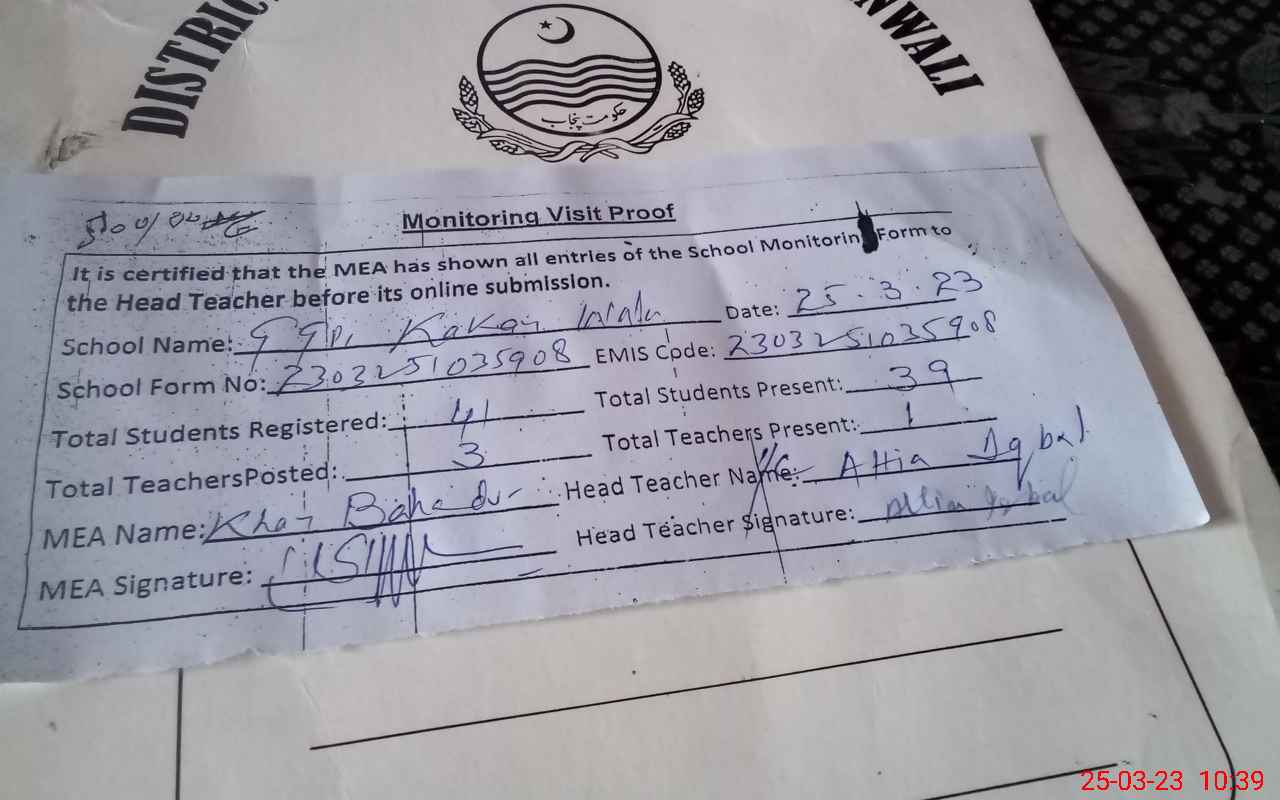 DISTRIC NWALI
حکومت پنجاب
Monitoring Visit Proof
It is certified that the MEA has shown all entries of the School Monitorin Form to
the Head Teacher before its online submission.
School Name: Date: 25.3.23
School Form No: 2303251035908 EMIS Code: 2303251035908
Total Students Registered: 41 Total Students Present: 39
Total TeachersPosted: 3 Total Teachers Present: 1
MEA Name: Khan Bahadur Head Teacher Name: Attia Iqbal
MEA Signature: Head Teacher Signature: Attia Iqbal
25-03-23 10:39